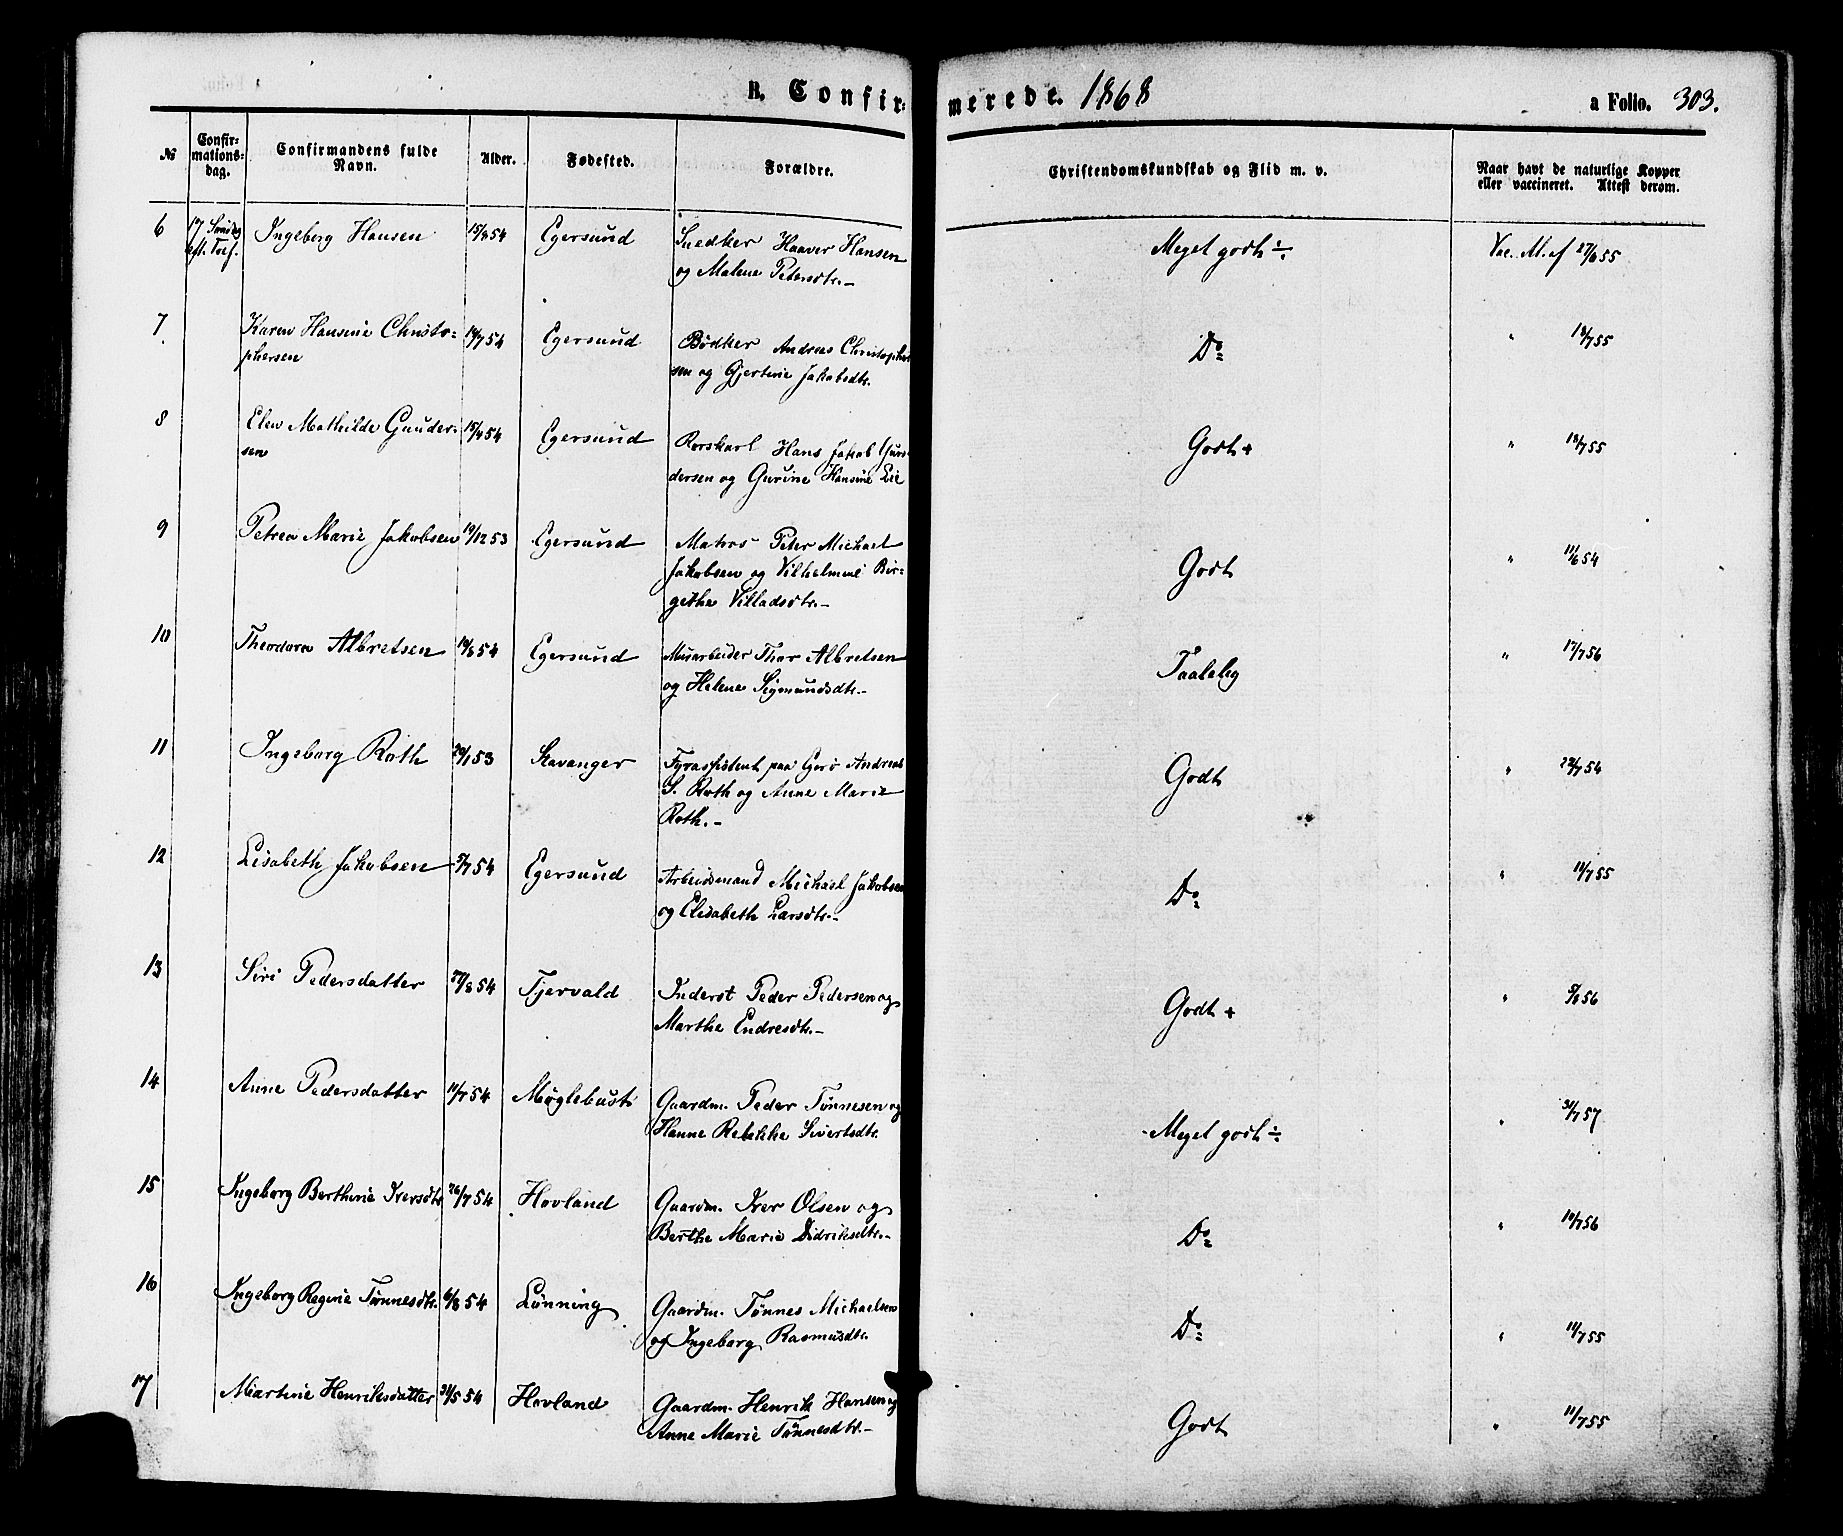 B. Confirmerede. 1868
a Folio. 303.
№ Confirmationsdag. Confirmandens fulde Navn. Alder. Fødested. Forældre. Christendomskundskab og Flid m. v. Naar havt de naturlige Kopper eller vaccineret. Attest derom.
6 17 Søndag Ingeborg Hansen 15/8 54 Egersund Snedker Haaver Hansen Meget godt ÷ Vac. Af 27/6 55
eft. Tref. og Malene Petersdtr.
7 Karen Hansine Christo= 19/7 54 Egersund Bødker Andreas Christopher Do 18/7 55
phersen sen og Gjertine Jakobsdtr.
8 Elen Mathilde Gunder= 15/4 54 Egersund Rorskarl Hans Jakob Gun Godt + " 18/7 55
sen dersen og Gurine Hansine Lie
9 Petrea Marie Jakobsen 19/12 53 Egersund Matros Peter Michael Godt " 11/6 54
Jakobsen og Vilhelmine Bir=
githe Villadsdtr.
10 Theodora Albretsen 19/8 54 Egersund Thor Albretsen Taalelig " 17/7 56
og Helene Sigmundsdtr.
11 Ingeborg Roth 29/1 53 Stavanger Fyrassistent paa Andreas Godt " 22/7 54
S. Roth og Anne Marie
Roth.
12 Lisabeth Jakobsen 5/7 54 Egersund Arbeidsmand Michael Jakobsen Do " 11/7 55
og Elisabeth Larsdtr.
13 Siri Pedersdatter 27/8 54 Tjervald Inderst Peder Pedersen og Godt + " 5/8 56
Marthe Endresdtr.
14 Anne Pedersdatter 11/7 54 Møglebust Gaardm. Peder Tønnesen og Meget godt ÷ " 31/7 57
Hanne Rebekke Sivertsdtr.
15 Ingeborg Berthine Iversdtr 26/7 54 Hovland Gaardm. Iver Olsen og Do " 10/7 56
Berthe Marie Didriksdtr.
16 Ingeborg Regine Tønnesdtr. 6/8 54 Lønning Gaardm. Tønnes Michaelsen Do " 11/7 55
og Ingeborg Rasmusdtr.
17 Martine Henriksdatter 31/5 54 Hovland Gaardm. Henrik Hansen og Godt " 11/7 55
Anne Marie Tønnesdtr.